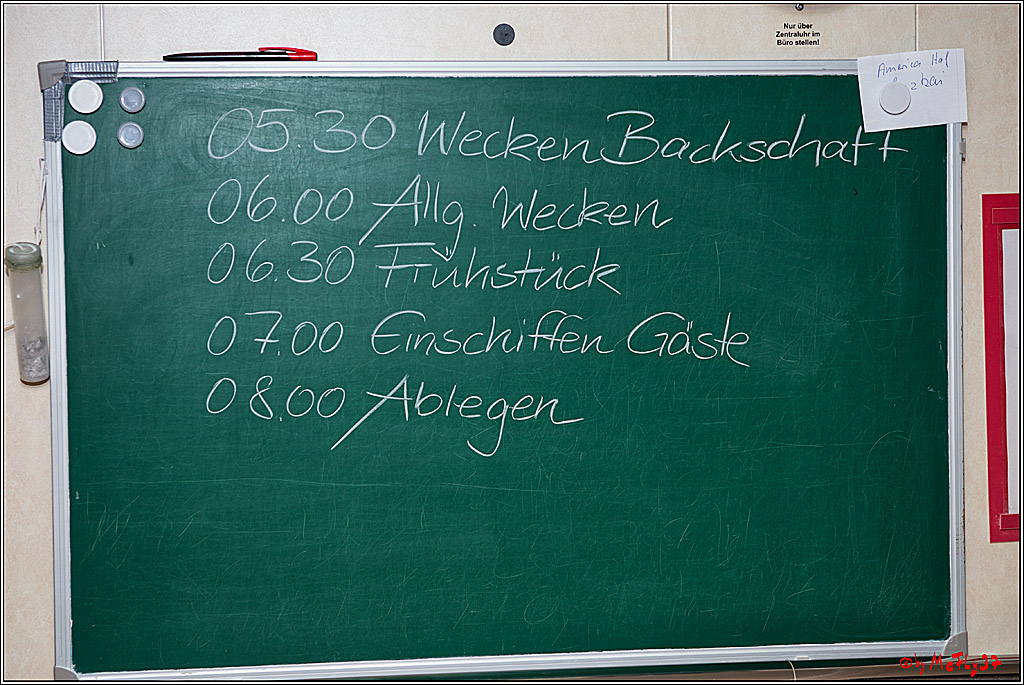 Nur über
Zentraluhr im
Büro stellen!
America Hof
05.30 Wecken Backschaft
06.00 Allg. Wecken
06.30 Frühstück
07.00 Einschiffen Gäste
08.00 Ablegen
©by McFly37